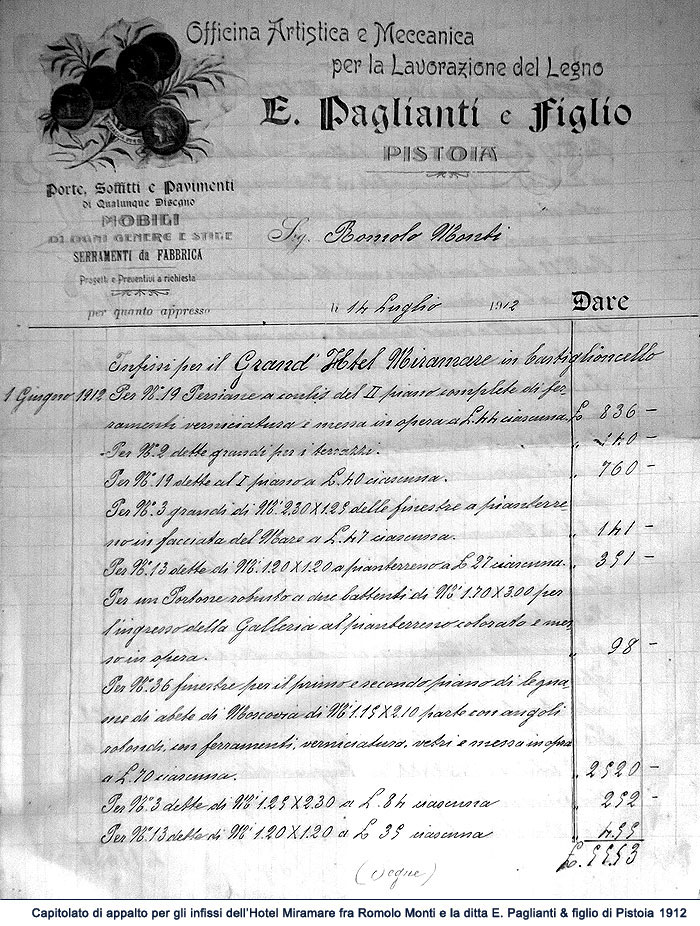 Officina Artistica e Meccanica
per la Lavorazione del Legno
E. Paglianti e Figlio
PISTOIA
Porte, Soffitti e Pavimenti
di Qualunque Disegno
MOBILI
DI OGNI GENERE E STILE
SERRAMENTI da FABBRICA
Progetti e Preventivi a richiesta
per quanto appresso
Sig. Romolo Monti
li 14 Luglio 1912 Dare
Infissi per il Grand' Hotel Miramare in Castiglioncello
1 Giugno 1912 Per No. 19 Persiane a coulis del II piano complete di fer-
ramenti verniciatura e messa in opera a L. 44 ciascuna £ 836 -
Per No. 2 dette grandi per i terrazzi. " 140 -
Per No. 19 dette al I piano a L. 40 ciascuna. " 760 -
Per No. 3 grandi di Mi 2.30 X 1.25 delle finestre a pianterre-
no in facciata del Mare a L. 47 ciascuna. " 141 -
Per No. 13 dette di Mi 1.20 X 1.20 a pianterreno a L 27 ciascuna. " 351 -
Per un Portone robusto a due battenti di Mi 1.70 X 3.00 per
l'ingresso della Galleria al pianterreno colorato e mes-
so in opera. " 98 -
Per No. 36 finestre per il primo e secondo piano di legna-
me di abete di Moscovia di Mi 1.15 X 2.10 parte con angoli
rotondi, con ferramenti, verniciatura, vetri e messa in opera
a L. 70 ciascuna. " 2520 -
Per No. 3 dette di Mi 1.25 X 2.30 a L. 84 ciascuna " 252 -
Per No. 13 dette di Mi 1.20 X 1.20 a L 35 ciascuna " 455
£. 5553
(segue)
Capitolato di appalto per gli infissi dell'Hotel Miramare fra Romolo Monti e la ditta E. Paglianti & figlio di Pistoia 1912